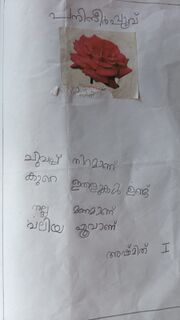 പനിനീർപ്പൂവ്
ചുവപ്പ് നിറമാണ്
കുറെ ഇതളുകൾ ഉണ്ട്
നല്ല മണമാണ്
വലിയ പൂവാണ്
അഷ്മിത് I